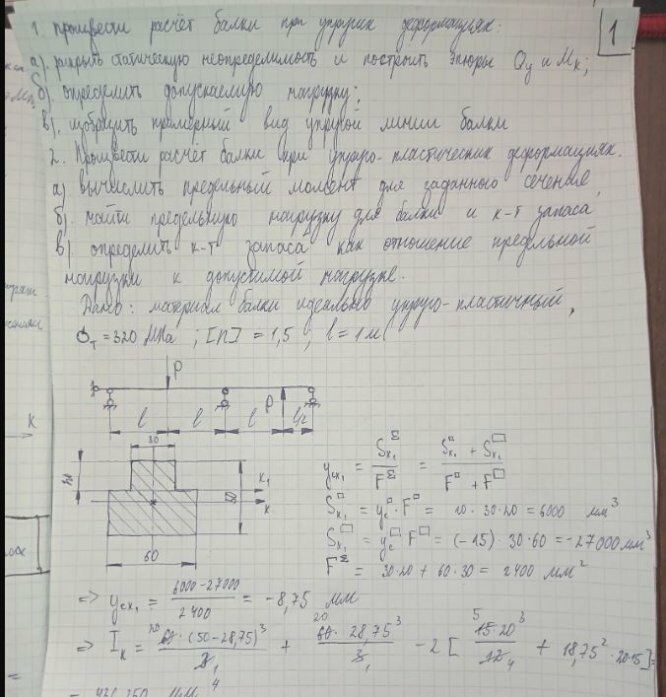 1
1. произвести расчёт балки при упругих деформациях:
а). раскрыть статическую неопределимость и построить эпюры Qy и Mк;
б). определить допускаемую нагрузку;
в). изобразить примерный вид упругой линии балки
2. Произвести расчёт балки при упруго-пластических деформациях.
а) вычислить предельный момент для заданного сечения
б). найти предельную нагрузку для балки и к-т запаса
в). определить к-т запаса как отношение предельной
нагрузки к допустимой нагрузке.
Дано: материал балки идеально упруго-пластичный,
σт = 320 МПа ; [n] = 1,5 ; l = 1 м
P
P
l l l l/2
30
20
50
x1
x
60
ycx1 = Sx1^Σ / F^Σ = (Sx1^□ + Sx1^▭) / (F^□ + F^▭)
Sx1^□ = yc^□ · F^□ = 10 · 30 · 20 = 6000 мм³
Sx1^▭ = yc^▭ · F^▭ = (-15) · 30 · 60 = -27000 мм³
F^Σ = 30 · 20 + 60 · 30 = 2400 мм²
=> ycx1 = (6000 - 27000) / 2400 = -8,75 мм
=> Ix = 20 60 · (50 - 28,75)³ / 3 1 + 20 60 · 28,75³ / 3 1 - 2 [ 5 15 · 20³ / 12 4 + 18,75² · 20·15 ] =